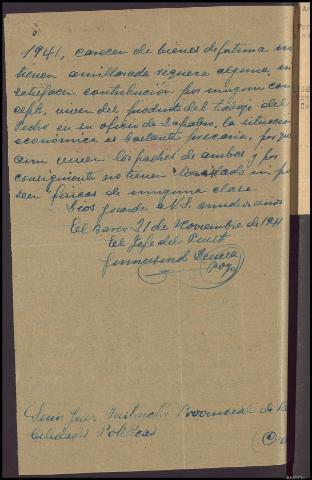 1941, carecen de bienes de fortuna ni
tienen amillarada riqueza alguna, ni
satisfacen contribución por ningun con
cepto, viven del producto del trabajo del
Pedro en su oficio de Zapatero, la situación
económica es bastante precaria, por que
aun viven los padres de ambos, y por
consiguiente no tienen ni po
seen fincas de ninguna clase.
Dios guarde a V.S. muchos años
El Barco 21 de Noviembre de 1941
El Jefe del Puest
Gumersindo
Señor Juez Instructor Provincial de Re
bilidades Políticas
(Or